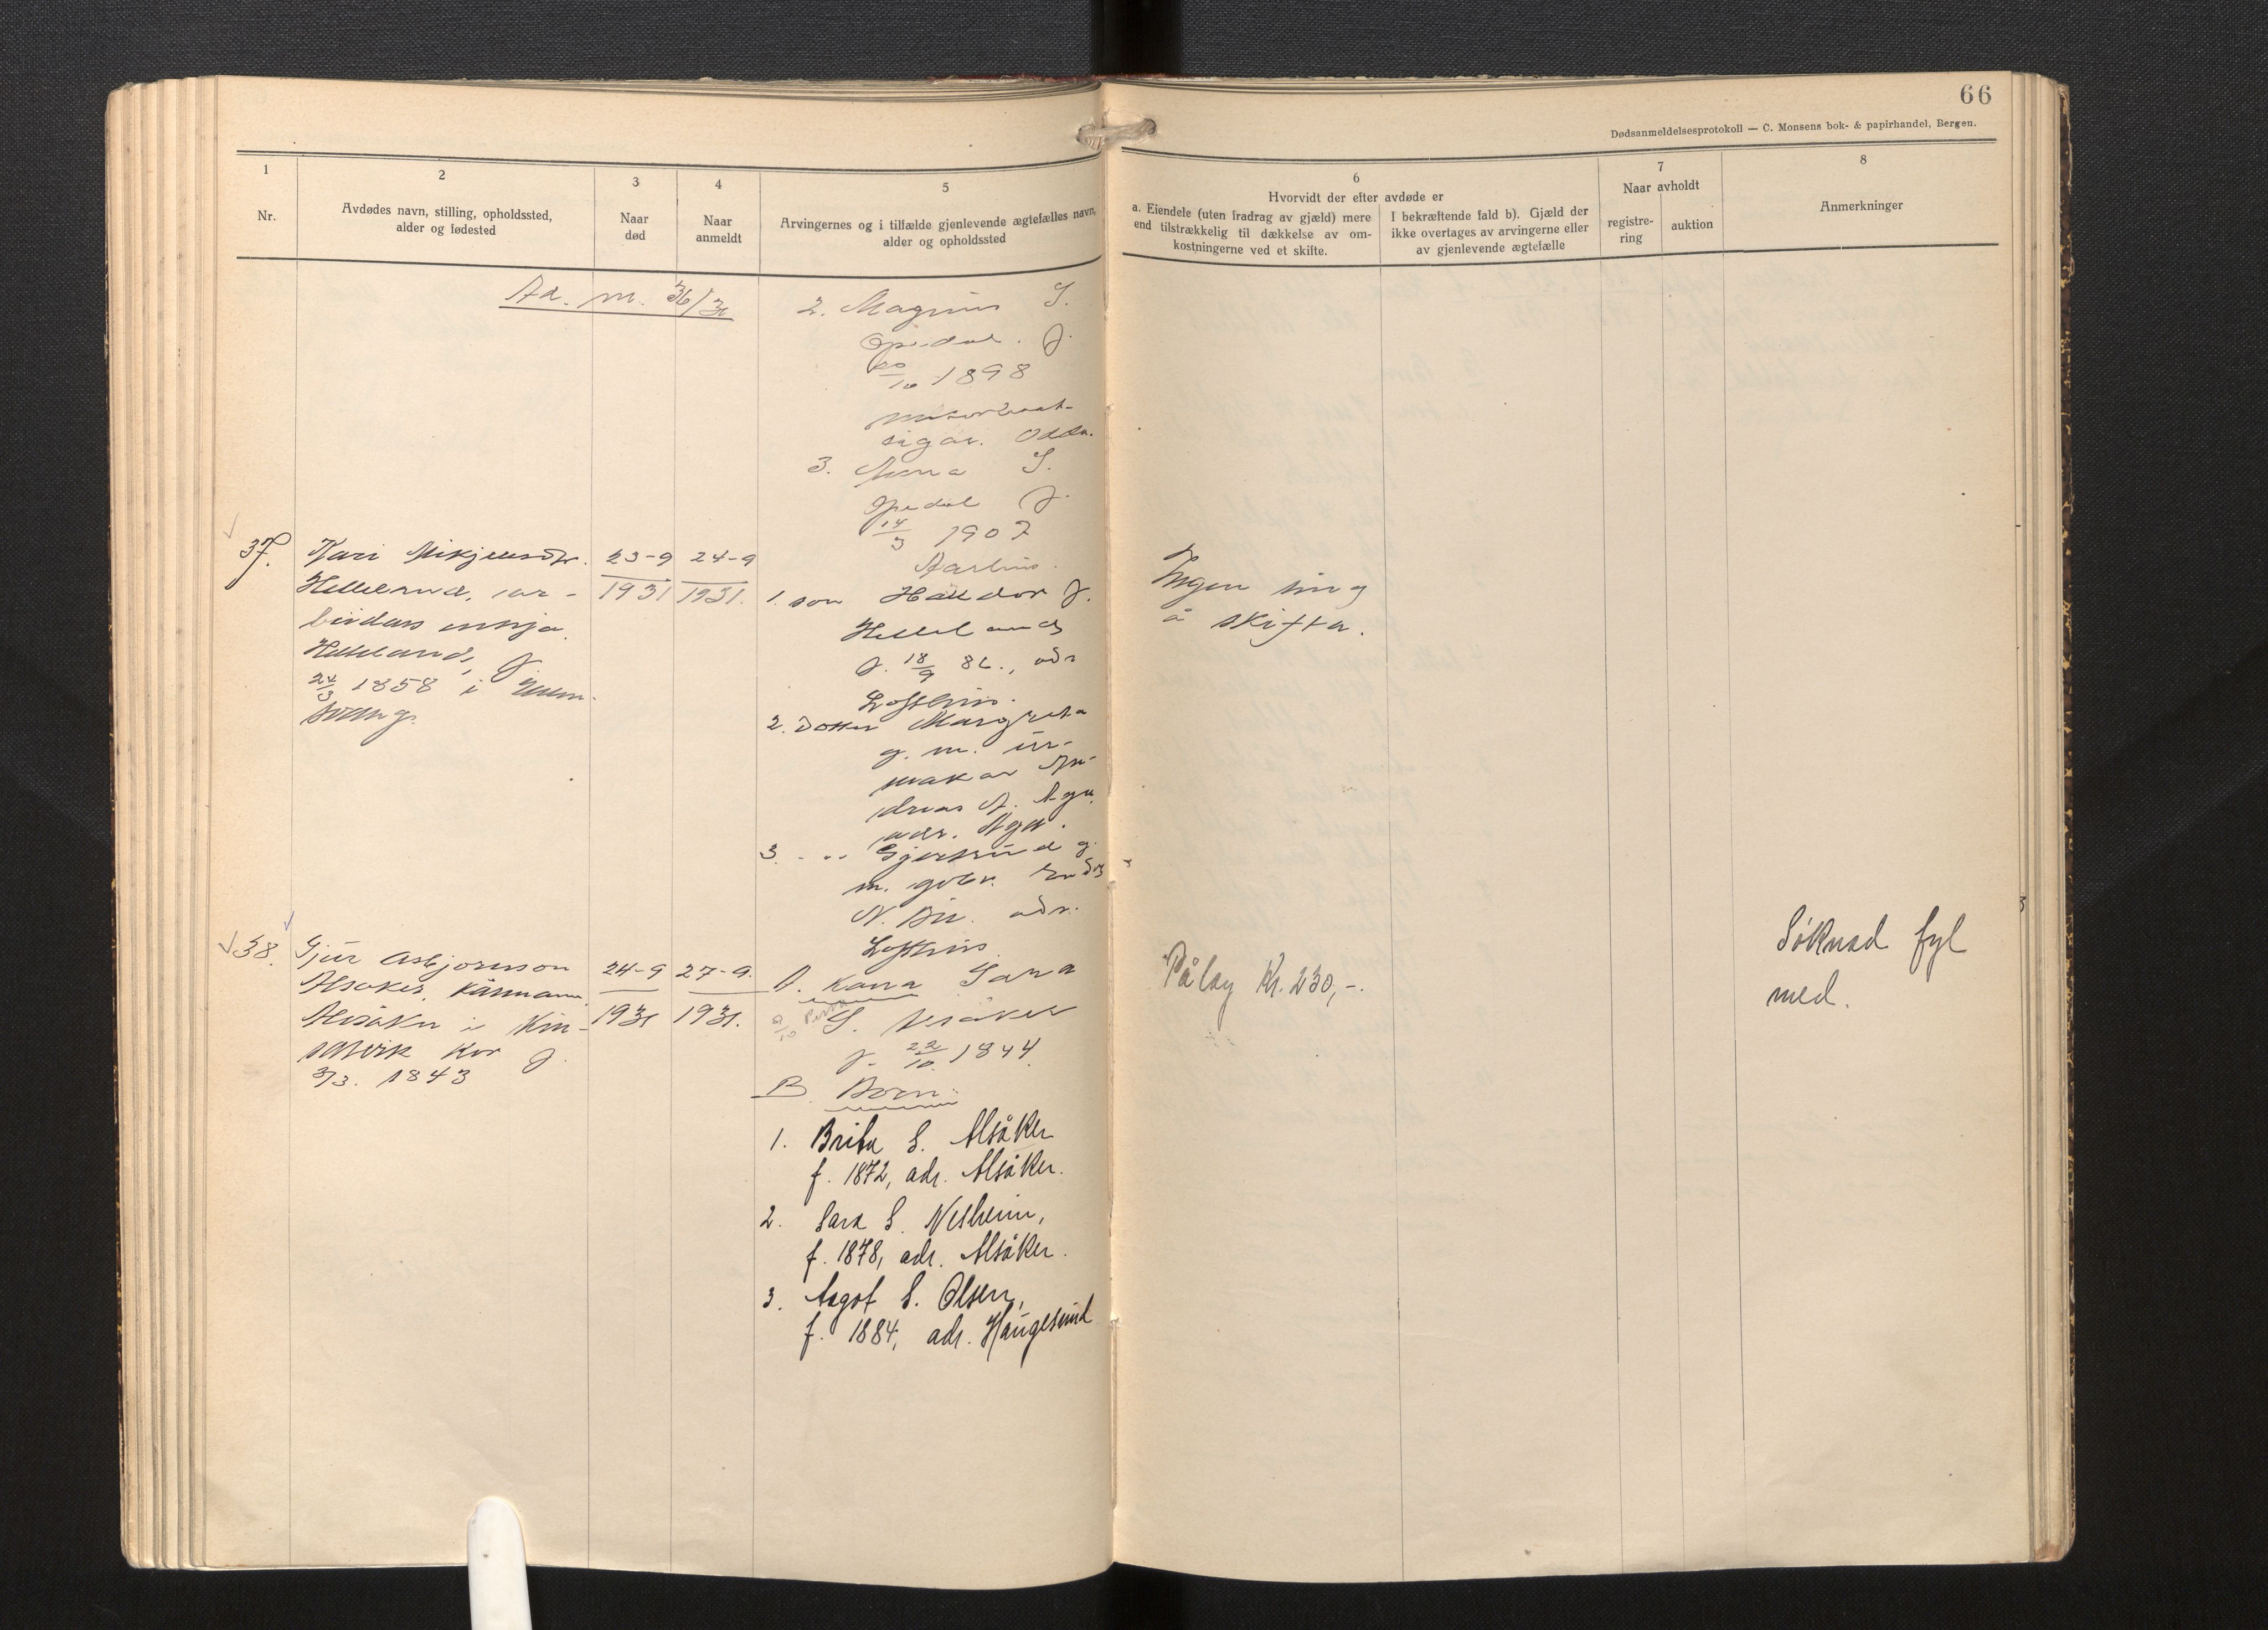 66
Dødsanmeldelsesprotokoll — C. Monsens bok- & papirhandel, Bergen.
1
Nr.
2
Avdødes navn, stilling, opholdssted,
alder og fødested
3
Naar
død
4
Naar
anmeldt
5
Arvingernes og i tilfælde gjenlevende ægtefælles navn,
alder og opholdssted
6
Hvorvidt der efter avdøde er
a. Eiendele (uten fradrag av gjæld) mere
end tilstrækkelig til dækkelse av om-
kostningerne ved et skifte.
I bekræftende fald b). Gjæld der
ikke overtages av arvingerne eller
av gjenlevende ægtefælle
7
Naar avholdt
registre-
ring
auktion
8
Anmerkninger
Ad. nr. 36/31
2. Magnus S.
Opedal. f.
20/10 1898
sigar. Odda.
3. Anna S.
Opedal f.
14/3 1907
1. son Halldor J.
Helleland
f. 18/9 82., adr
Lofthus.
2. Dotter Margreta
g. m. ur-
makar An-
dreas A. Aga
adr. Aga.
3. -"- Gjertrud g.
m. gbr.
N. Bu. adr.
Lofthus
37.
Kari Mikjelsdtr.
Helleland, ar-
beidars enkja
Helleland, f.
24/3 1858 i Ullens-
vang.
23-9
1931
24-9
1931.
Ingen ting
å skifta.
38.
Sjur Asbjørnson
Alsaker, kårmann
Alsåker i Kin-
sarvik
kor f.
3/3. 1843
24-9
1931
27-9.
1931.
A. Kona Sara
S. Alsåker
f. 22/10. 1844
B. Born:
1. Brita S. Alsåker
f. 1872, adr. Alsåker.
2. Sara S. Nesheim,
f. 1878, adr. Alsåker.
3. Aagot S. Olsen,
f. 1884, adr. Haugesund
Pålag Kr. 230,-.
Søknad fyl
med.